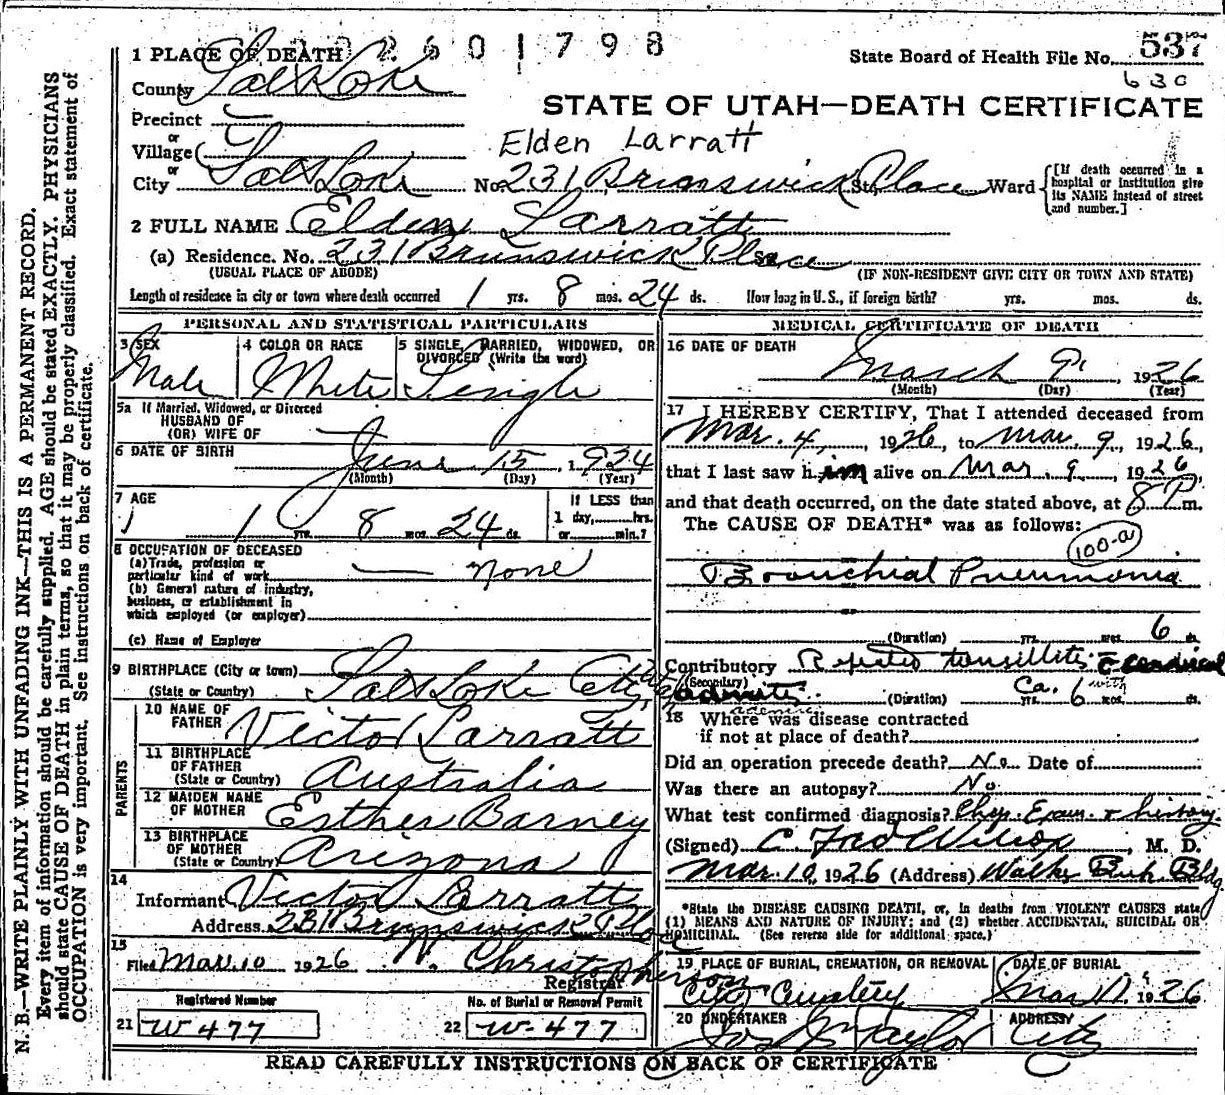 2601798
1 PLACE OF DEATH
State Board of Health File No. 537
630
County Salt Lake
STATE OF UTAH—DEATH CERTIFICATE
Precinct
or
Village
Elden Larratt
or
City Salt Lake No. 231 Brunswick St. Place Ward
[If death occurred in a
hospital or institution give
its NAME instead of street
and number.]
2 FULL NAME Elden Larratt
(a) Residence. No. 231 Brunswick Place
(USUAL PLACE OF ABODE)
(IF NON-RESIDENT GIVE CITY OR TOWN AND STATE)
Length of residence in city or town where death occurred 1 yrs. 8 mos. 24 ds. How long in U.S., if foreign birth? yrs. mos. ds.
PERSONAL AND STATISTICAL PARTICULARS
3 SEX
Male
4 COLOR OR RACE
White
5 SINGLE, MARRIED, WIDOWED, OR
DIVORCED (Write the word)
Single
5a If Married, Widowed, or Divorced
HUSBAND OF
(OR) WIFE OF
6 DATE OF BIRTH
June 15, 1924
(Month) (Day) (Year)
7 AGE
1 1 yrs. 8 mos. 24 ds.
If LESS than
1 day, hrs.
or min.?
8 OCCUPATION OF DECEASED
(a) Trade, profession or
particular kind of work none
(b) General nature of industry,
business, or establishment in
which employed (or employer)
(c) Name of Employer
9 BIRTHPLACE (City or town) Salt Lake City
(State or Country)
PARENTS
10 NAME OF
FATHER Victor Larratt
11 BIRTHPLACE
OF FATHER
(State or Country) Australia
12 MAIDEN NAME
OF MOTHER Esther Barney
13 BIRTHPLACE
OF MOTHER
(State or Country) Arizona
14
Informant Victor Larratt
Address 231 Brunswick Place
15
Filed Mar. 10 1926 W. Christopherson
Registrar
Registered Number
21 W-477
No. of Burial or Removal Permit
22 W-477
MEDICAL CERTIFICATE OF DEATH
16 DATE OF DEATH
March 9, 1926
(Month) (Day) (Year)
17 I HEREBY CERTIFY, That I attended deceased from
Mar. 4, 1926, to Mar. 9, 1926,
that I last saw him alive on Mar. 9, 1926,
and that death occurred, on the date stated above, at 8 P. m.
The CAUSE OF DEATH* was as follows:
100-a
Bronchial Pneumonia
(Duration) yrs. mos. 6 ds.
Contributory Repeated tonsillitis
(Secondary)
(Duration) Ca. yrs. 6 mos. ds.
with
18 Where was disease contracted
if not at place of death?
Did an operation precede death? No Date of
Was there an autopsy? No
What test confirmed diagnosis? Phy. Exam. & history.
(Signed) C. Fred Wilcox, M. D.
Mar. 10, 1926 (Address) Walker Bank Bldg
*State the DISEASE CAUSING DEATH, or, in deaths from VIOLENT CAUSES state
(1) MEANS AND NATURE OF INJURY; and (2) whether ACCIDENTAL, SUICIDAL OR
HOMICIDAL. (See reverse side for additional space.)
19 PLACE OF BURIAL, CREMATION, OR REMOVAL
City Cemetery
DATE OF BURIAL
Mar 11, 1926
20 UNDERTAKER
Jos Wm Taylor
ADDRESS
City
READ CAREFULLY INSTRUCTIONS ON BACK OF CERTIFICATE
N. B.—WRITE PLAINLY WITH UNFADING INK—THIS IS A PERMANENT RECORD.
Every item of information should be carefully supplied. AGE should be stated EXACTLY. PHYSICIANS
should state CAUSE OF DEATH in plain terms, so that it may be properly classified. Exact statement of
OCCUPATION is very important. See instructions on back of certificate.